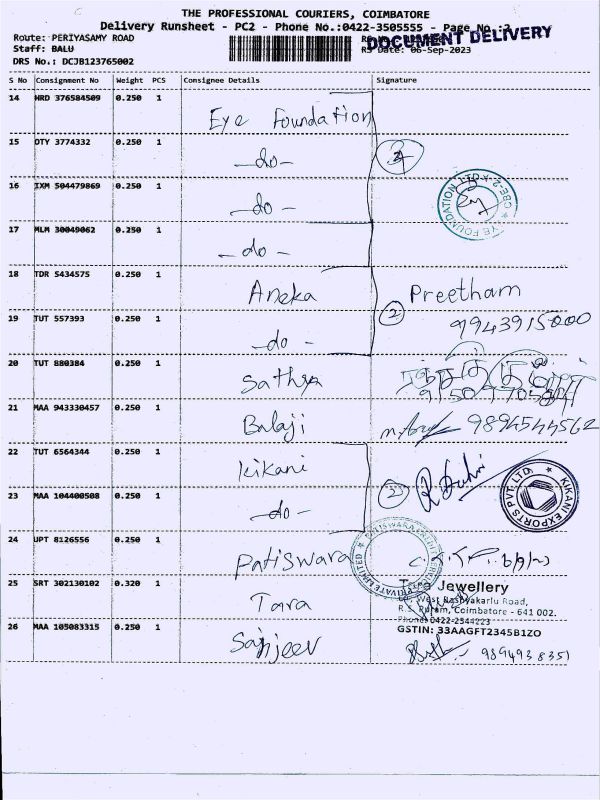 THE PROFESSIONAL COURIERS, COIMBATORE
Delivery Runsheet - PC2 - Phone No.:0422-3505555 - Page No.:2
DOCUMENT DELIVERY
Route: PERIYASAMY ROAD
Staff: BALU
Date: 06-Sep-2023
DRS No.: DCJB123765002
S No Consignment No Weight PCS Consignee Details Signature
14 HRD 376584509 0.250 1 Eye Foundation
15 DTY 3774332 0.250 1 -do-
16 IXM 504479869 0.250 1 -do-
17 MLM 30049062 0.250 1 -do-
18 TDR 5434575 0.250 1 Aneka 2 Preetham
19 TUT 557393 0.250 1 -do- 9943915000
20 TUT 880384 0.250 1 Sathya
21 MAA 943330457 0.250 1 Balaji 9894544562
22 TUT 6564344 0.250 1 Kikani
KIKANI EXPORTS PVT. LTD.
23 MAA 104400508 0.250 1 -do- 2
24 UPT 8126556 0.250 1 Patiswara
PRIVATE LIMITED
25 SRT 302130102 0.320 1 Tara
Tara Jewellery
R.S. Puram, Coimbatore - 641 002.
Phone: 0422-2544223
GSTIN: 33AAGFT2345B1ZO
26 MAA 105083315 0.250 1 Sanjeev 989493835)